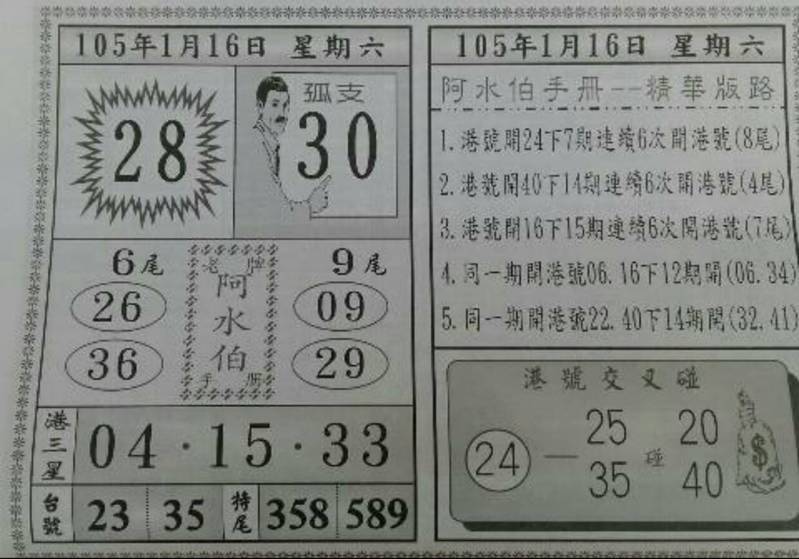 105年1月16日 星期六
28
孤支
30
6尾
26
36
老牌
阿水伯
手册
9尾
09
29
港三星
04·15·33
台號
23 35
特尾
358 589
105年1月16日 星期六
阿水伯手册--精華版路
1.港號開24下7期連續6次開港號(8尾)
2.港號開40下14期連續6次開港號(4尾)
3.港號開16下15期連續6次開港號(7尾)
4.同一期開港號06.16下12期開(06.34)
5.同一期開港號22.40下14期開(32.41)
港號交叉碰
24 — 25 35 碰 20 40
$